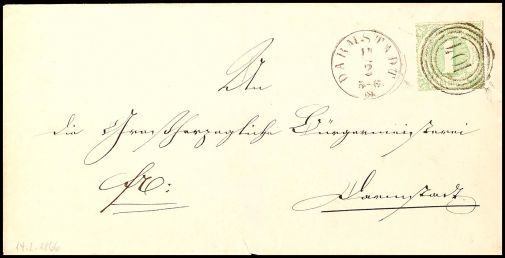 DARMSTADT
14
2
5-6
101
An
die Großherzogliche Bürgermeisterei
fr:
Darmstadt
14.2.1866